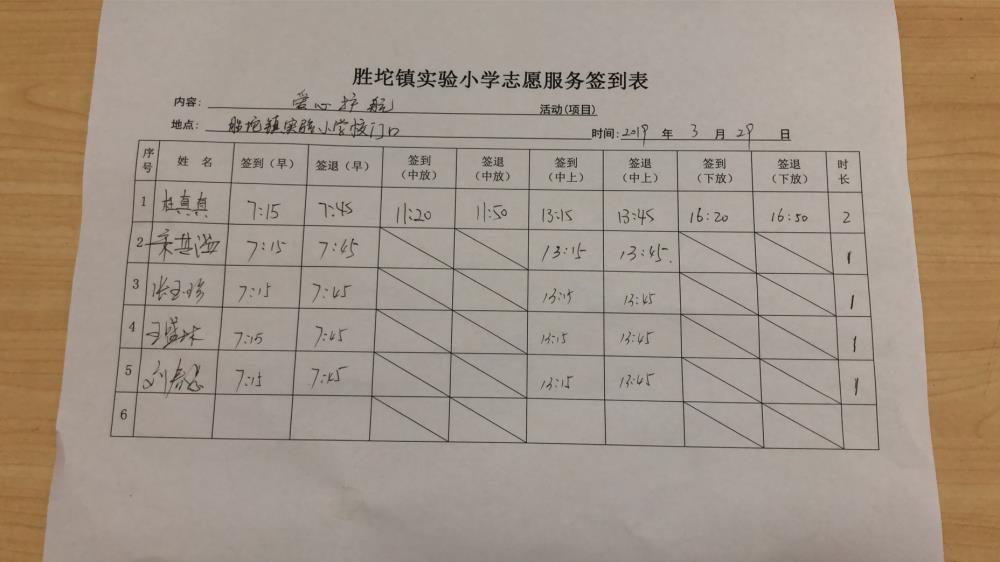 胜坨镇实验小学志愿服务签到表
内容: 爱心护航 活动(项目)
地点: 胜坨镇实验小学校门口 时间: 2019 年 3 月 29 日
序号 姓名 签到(早) 签退(早) 签到(中放) 签退(中放) 签到(中上) 签退(中上) 签到(下放) 签退(下放) 时长
1 杜真真 7:15 7:45 11:20 11:50 13:15 13:45 16:20 16:50 2
2 7:15 7:45 13:15 13:45. 1
3 张玉珍 7:15 7:45 13:15 13:45 1
4 7:15 7:45 13:15 13:45 1
5 7:15 7:45 13:15 13:45 1
6